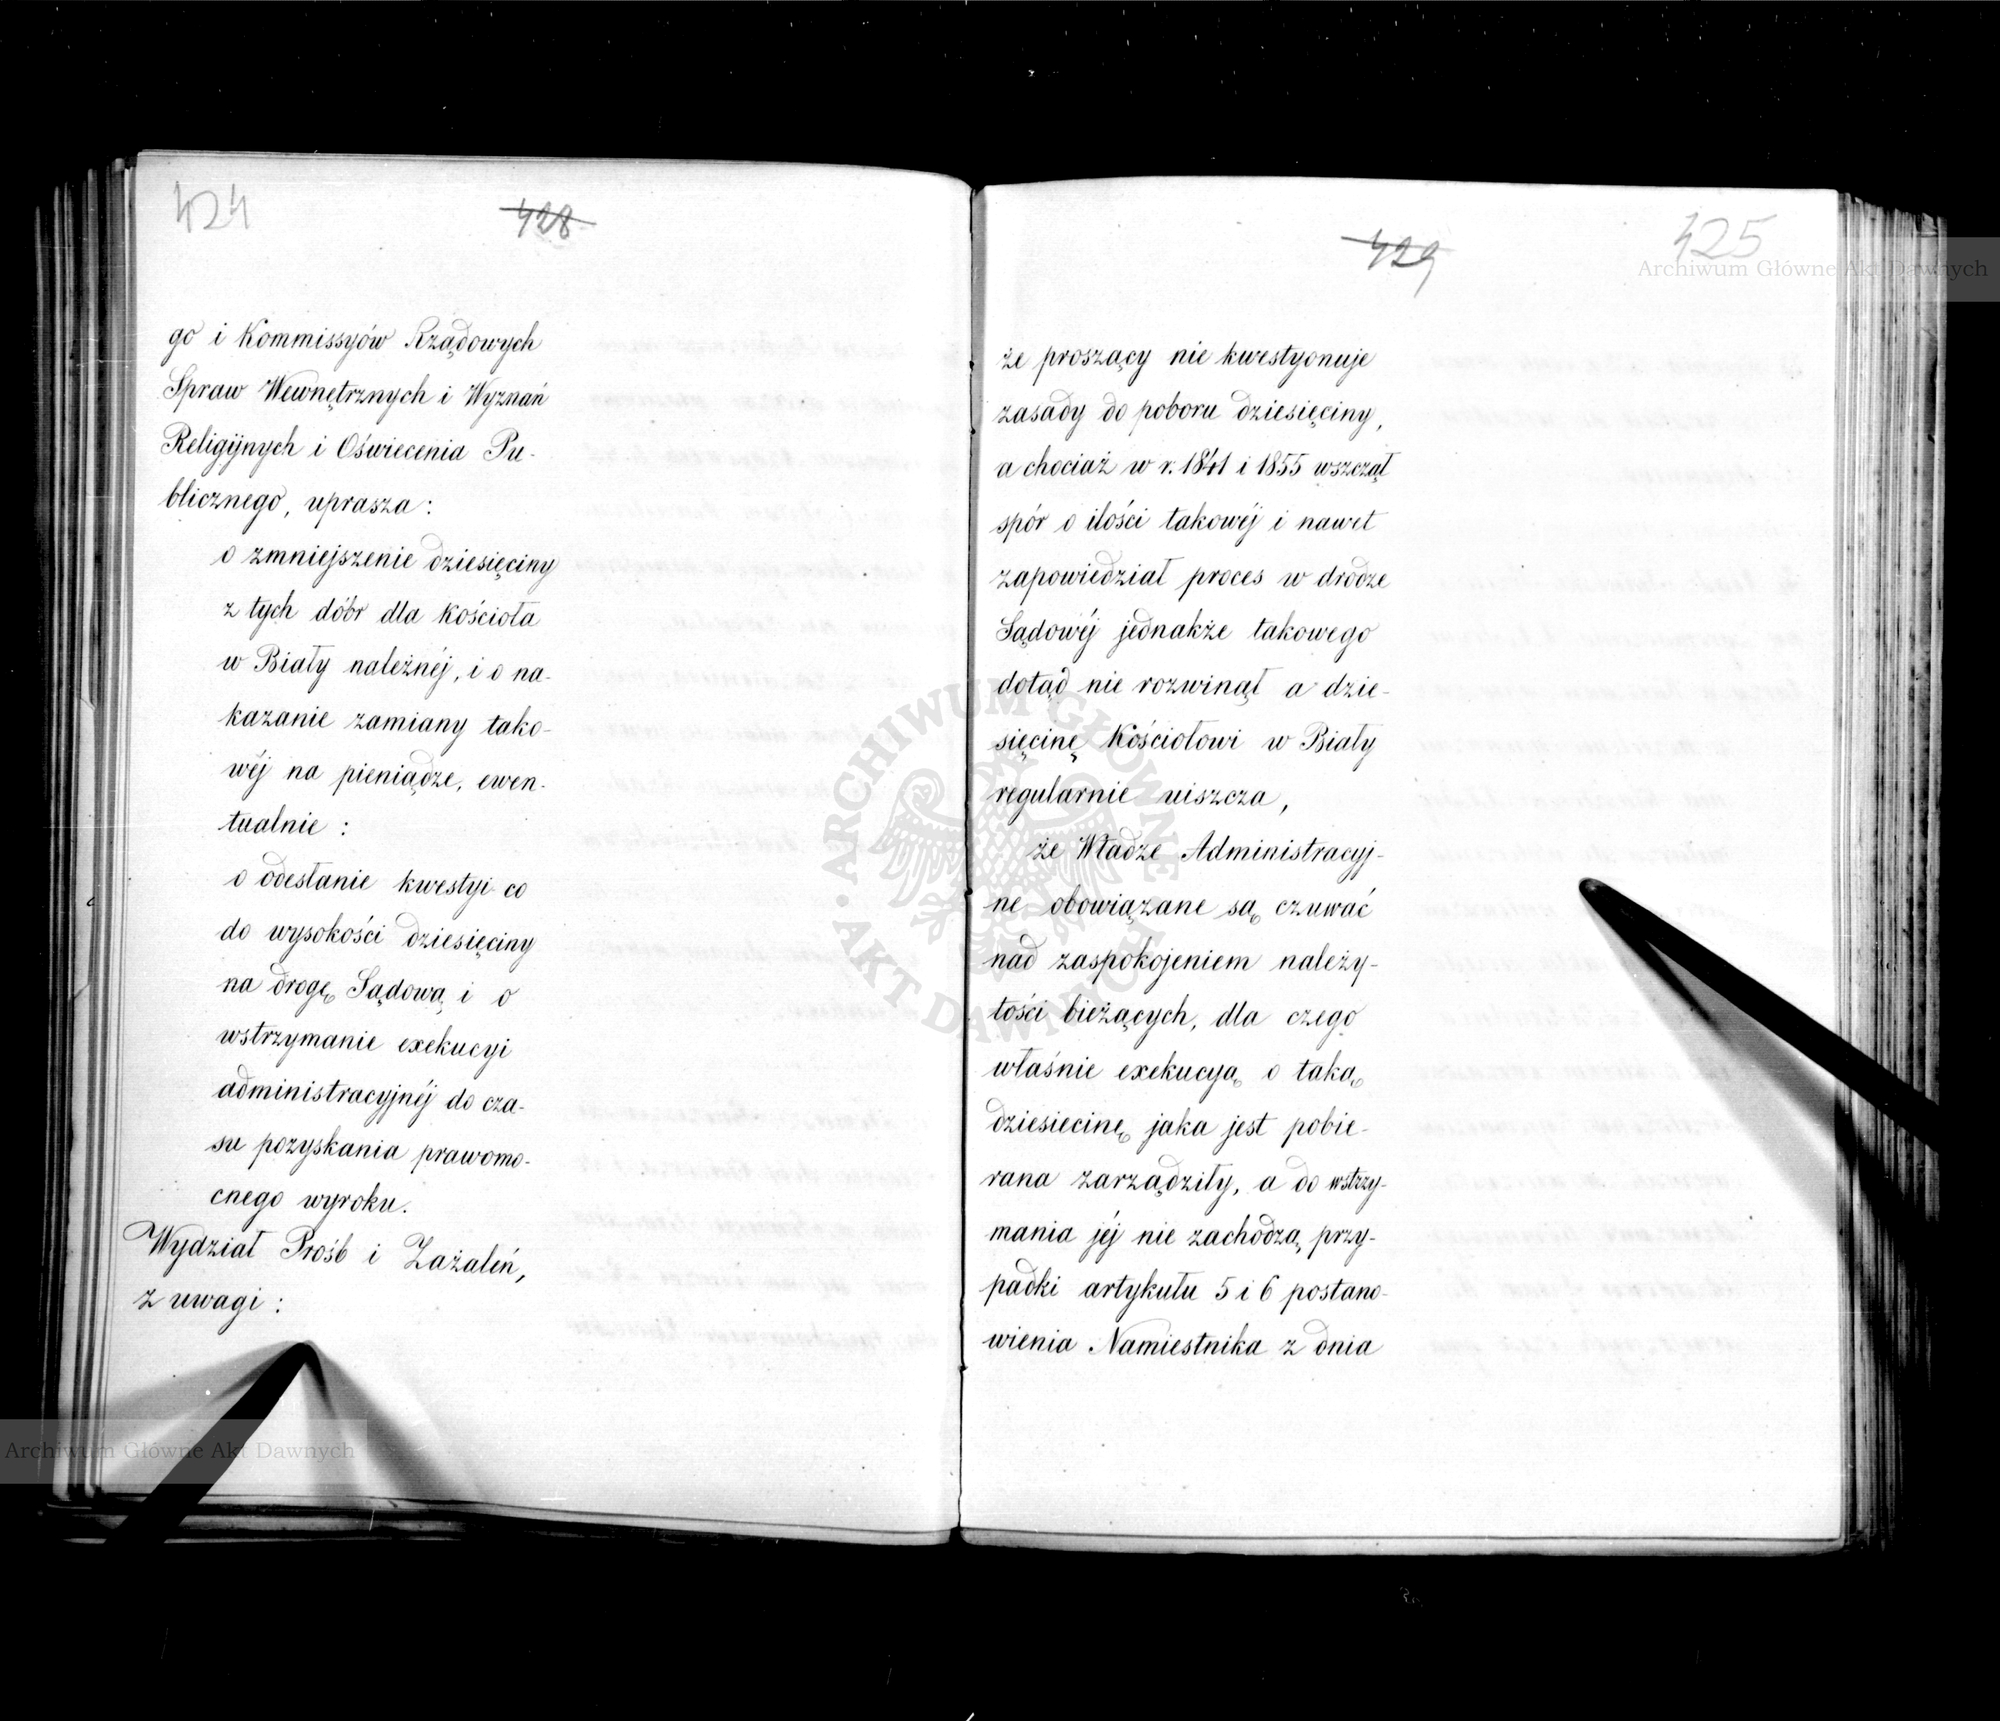 424
428
go i Kommissyów Rządowych
Spraw Wewnętrznych i Wyznań
Religijnych i Oświecenia Pu-
blicznego, uprasza:
o zmniejszenie dziesięciny
z tych dóbr dla kościoła
w Biały należnéj, i o na-
kazanie zamiany tako-
wéj na pieniądze, ewen-
tualnie:
o odesłanie kwestyi co
do wysokości dziesięciny
na drogę Sądową i o
wstrzymanie exekucyi
administracyjnéj do cza-
su pozyskania prawomo-
cnego wyroku.
Wydział Prośb i Zażaleń,
z uwagi:
429
425
że proszący nie kwestyonuje
zasady do poboru dziesięciny,
a chociaż w r. 1841 i 1855 wszczął
spór o ilości takowéj i nawet
zapowiedział proces w drodze
Sądowéj jednakże takowego
dotąd nie rozwinął a dzie-
sięcinę Kościołowi w Biały
regularnie uiszcza,
że Władze Administracyj-
ne obowiązane są czuwać
nad zaspokojeniem należy-
tości bieżących, dla czego
właśnie exekucyą o taką
dziesiecinę jaka jest pobie-
rana zarządziły, a do wstrzy-
mania jéj nie zachodzą przy-
padki artykułu 5 i 6 postano-
wienia Namiestnika z dnia
Archiwum Główne Akt Dawnych
Archiwum Główne Akt Dawnych
ARCHIWUM GŁÓWNE
AKT DAWNYCH